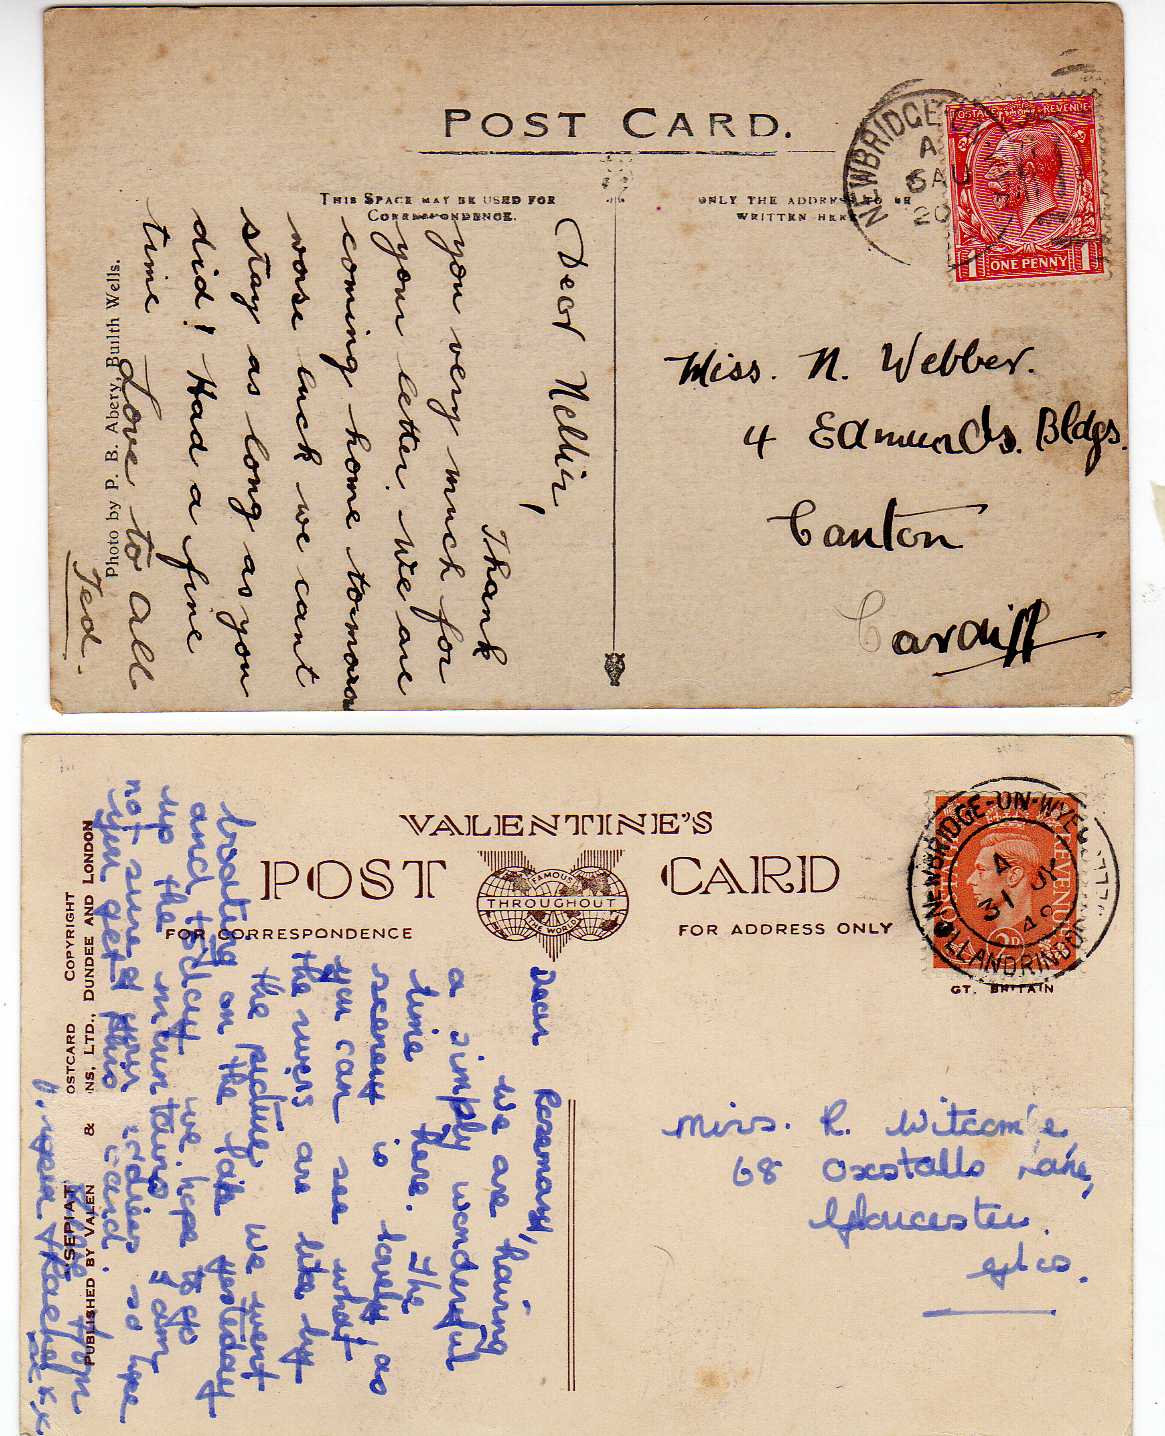 POST CARD.
THIS SPACE MAY BE USED FOR
CORRESPONDENCE.
ONLY THE ADDRESS TO BE
WRITTEN HERE
NEWBRIDGE
A
6 AU
20
POSTAGE REVENUE
1 ONE PENNY 1
Dear Nellie,
Thank
you very much for
your letter. We are
coming home tomorrow
worse luck we cant
stay as long as you
did! Had a fine
time
Love to all
Ted.
Photo by P. B. Abery, Builth Wells.
Miss. N. Webber.
4 Edmunds. Bldgs.
Canton
Cardiff
VALENTINE'S
POST CARD
FAMOUS
THROUGHOUT
THE WORLD
FOR CORRESPONDENCE
FOR ADDRESS ONLY
NEWBRIDGE-ON-WYE
A
31 JY
48
LLANDRINDOD WELLS
REVENUE
GT. BRITAIN
Dear Rosemary,
we are having
a simply wonderful
time here. The
scenery is lovely, as
you can see what
the rivers are like by
the picture we went
boating on the lake yesteday
and to-day we hope to go
up the mountains I am
not sure of your address so hope
you get this card.
Love from
& Rachel
xxx
OSTCARD COPYRIGHT
"SEPIAT
PUBLISHED BY VALEN & NS, LTD., DUNDEE AND LONDON
Miss. R. Witcom e,
68 Oxstalls Lane,
Gloucester.
Glos.